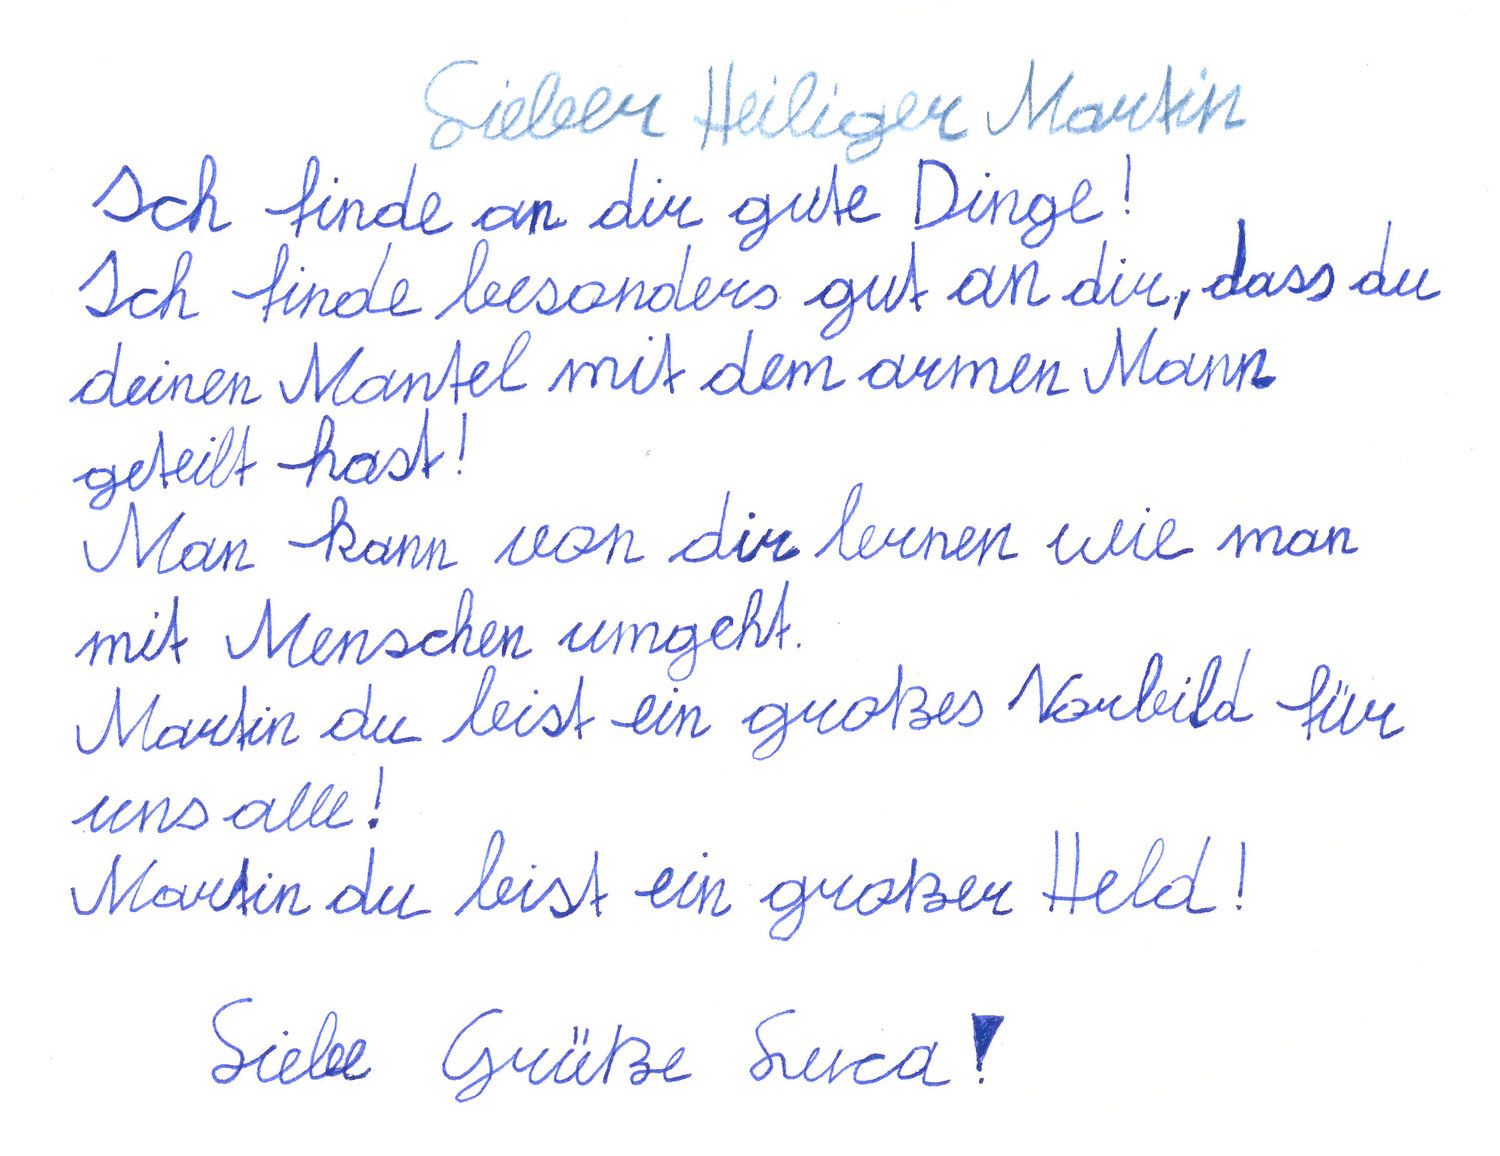 Lieber Heiliger Martin
Ich finde an dir gute Dinge!
Ich finde besonders gut an dir, dass du
deinen Mantel mit dem armen Mann
geteilt hast!
Man kann von dir lernen wie man
mit Menschen umgeht.
Martin du bist ein großes Vorbild für
uns alle!
Martin du bist ein großer Held!
Liebe Grüße Luca!